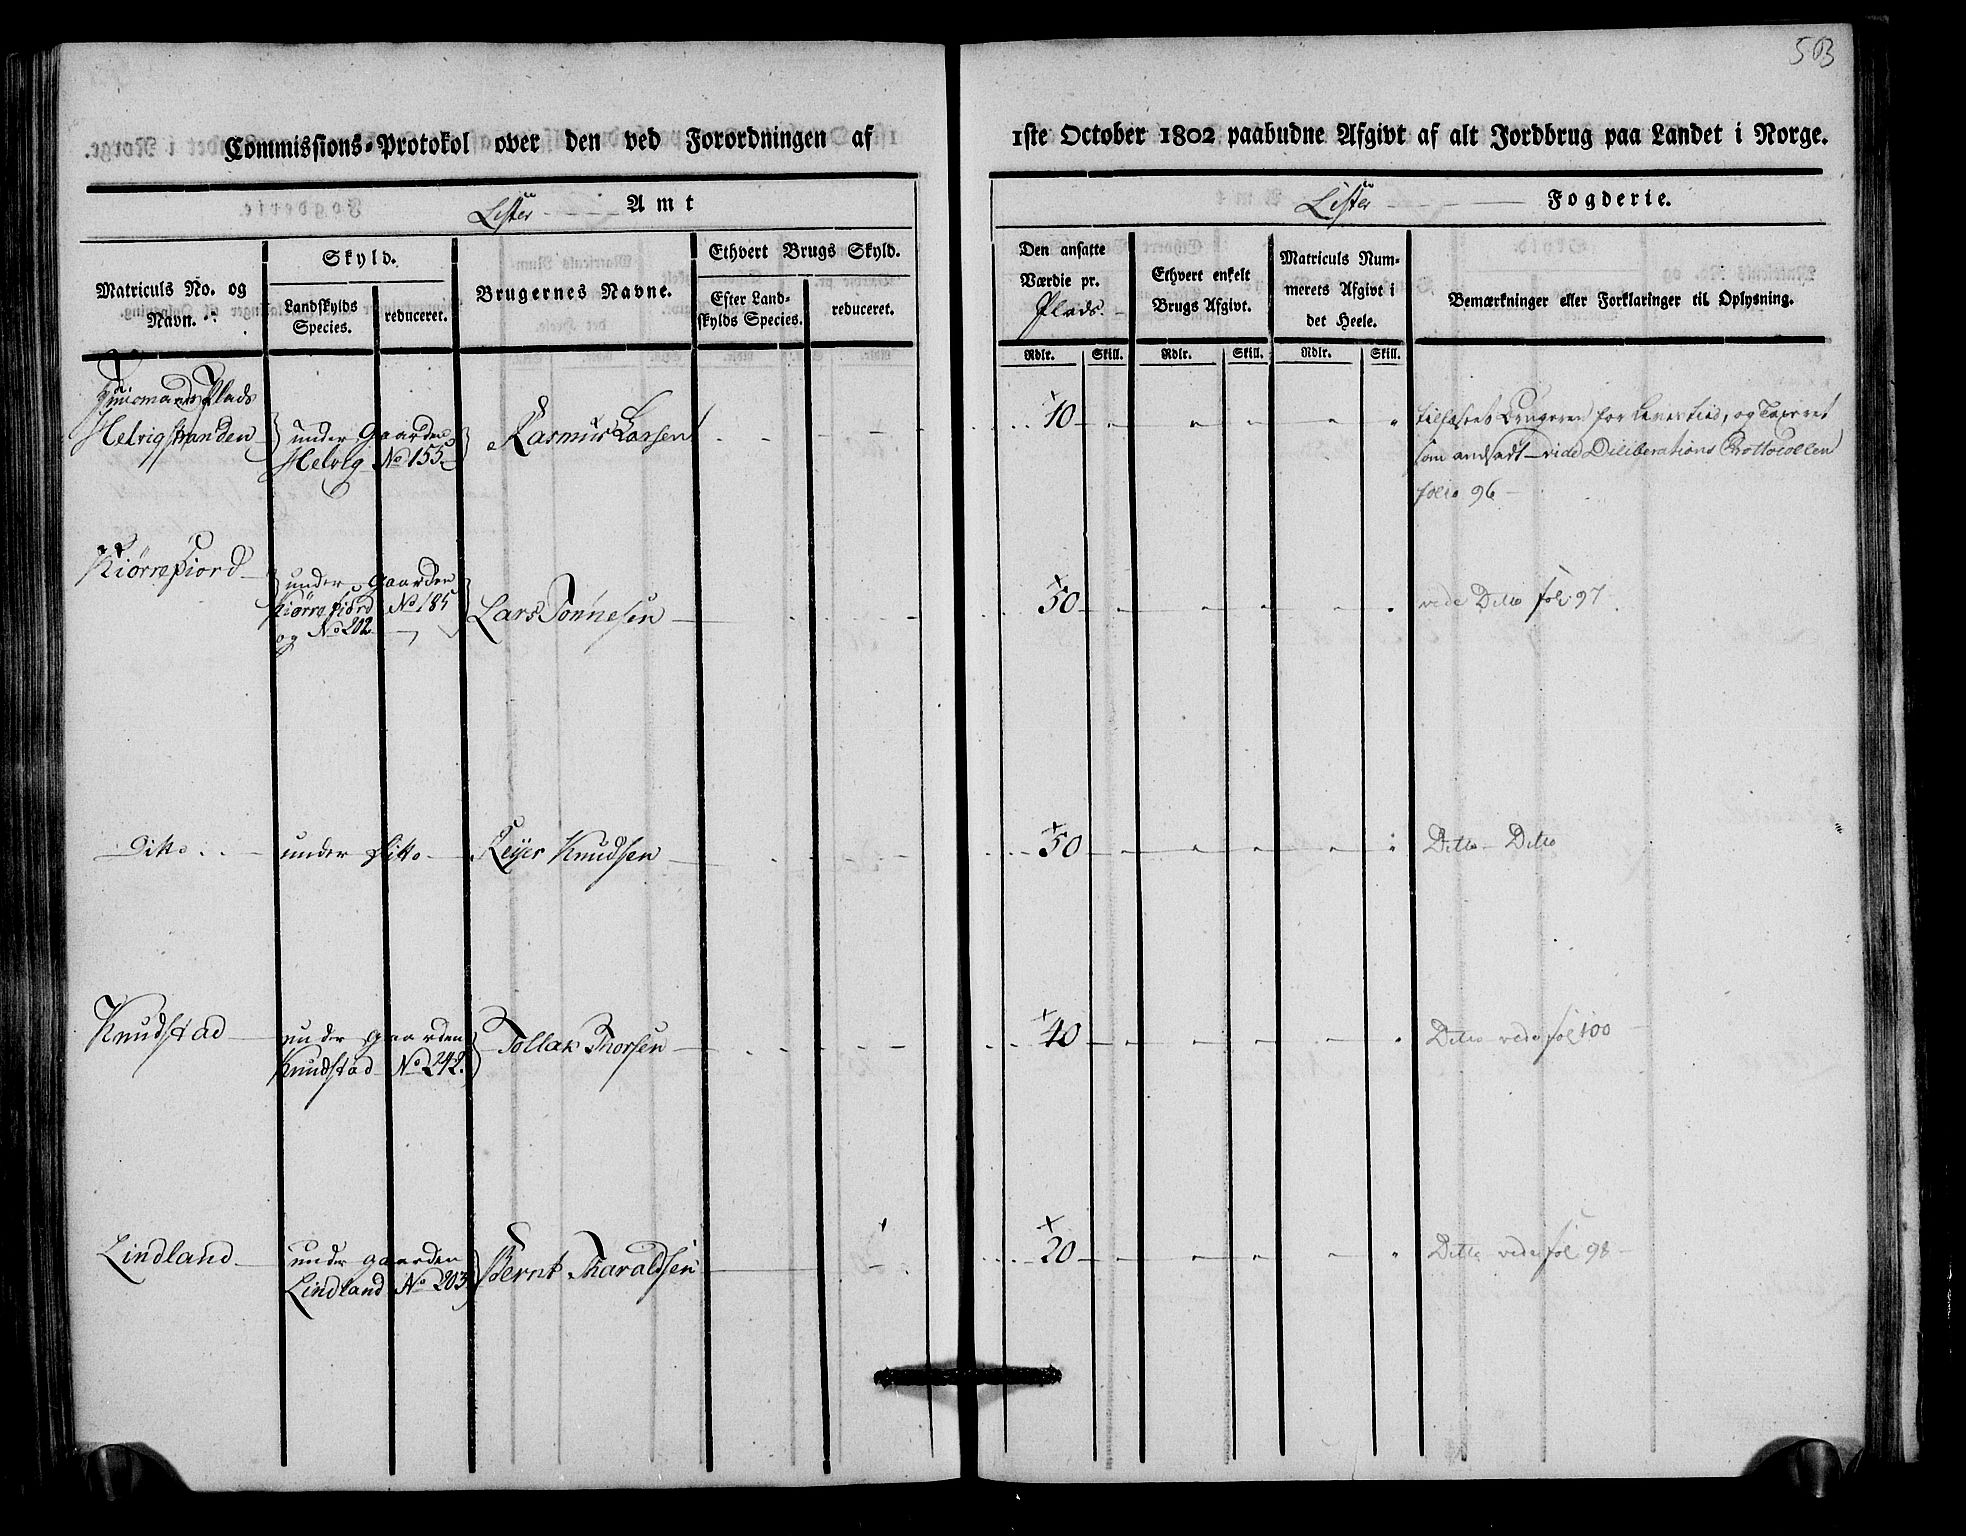 503
Commissions-Protokol over den ved Forordningen af 1ste October 1802 paabudne Afgivt af alt Jordbrug paa Landet i Norge.
Lister Amt
Lister Fogderie.
Matriculs No. og Navn.
Skyld.
Landskylds Species.
reduceret.
Brugernes Navne.
Ethvert Brugs Skyld.
Efter Landskylds Species.
reduceret.
Den ansatte Værdie pr. Plads
Ethvert enkelt Brugs Afgivt.
Matriculs Nummerets Afgivt i det Heele.
Bemærkninger eller Forklaringer til Oplysning.
Rdlr. Skill. Rdlr. Skill. Rdlr. Skill.
Huusmands Plads
Helvigstranden
under Gaarden
Helvig No 155
Rasmus Larsen
10
Brugeren for Levestiid, og Taxeret
som andsadt vide Diliberations Prottocollen
folio 96
Kiørrefiord
under Gaarden
Kiørrefiord No 185
og No 202
Lars Tønnesen
50
vide Ditto fol 97
Ditto
under Ditto
Reyer Knudsen
50
Ditto Ditto
Knudstad
under gaarden
Knudstad No 242.
Tollak Thorsen
40
Ditto vide fol 100
Lindland
under gaarden
Lindland No 203
Bernt Tharaldsen
20
Ditto vide fol 98